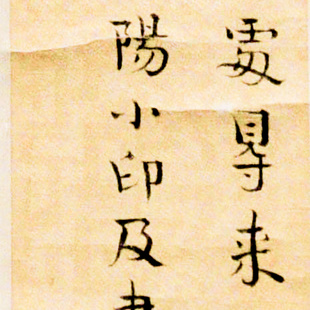 處尋来
陽小印及